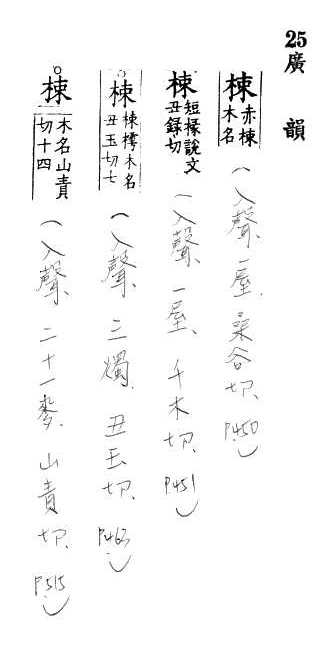 25廣韻
棟 赤棟木名 (入聲、一屋、桑谷切、P.450)
棟 短椽說文丑錄切 (入聲、一屋、千木切、P.451)
棟 棟樗木名丑玉切七 (入聲、三燭、丑玉切、P.463)
棟 木名山責切十四 (入聲、二十一麥、山責切、P.515)